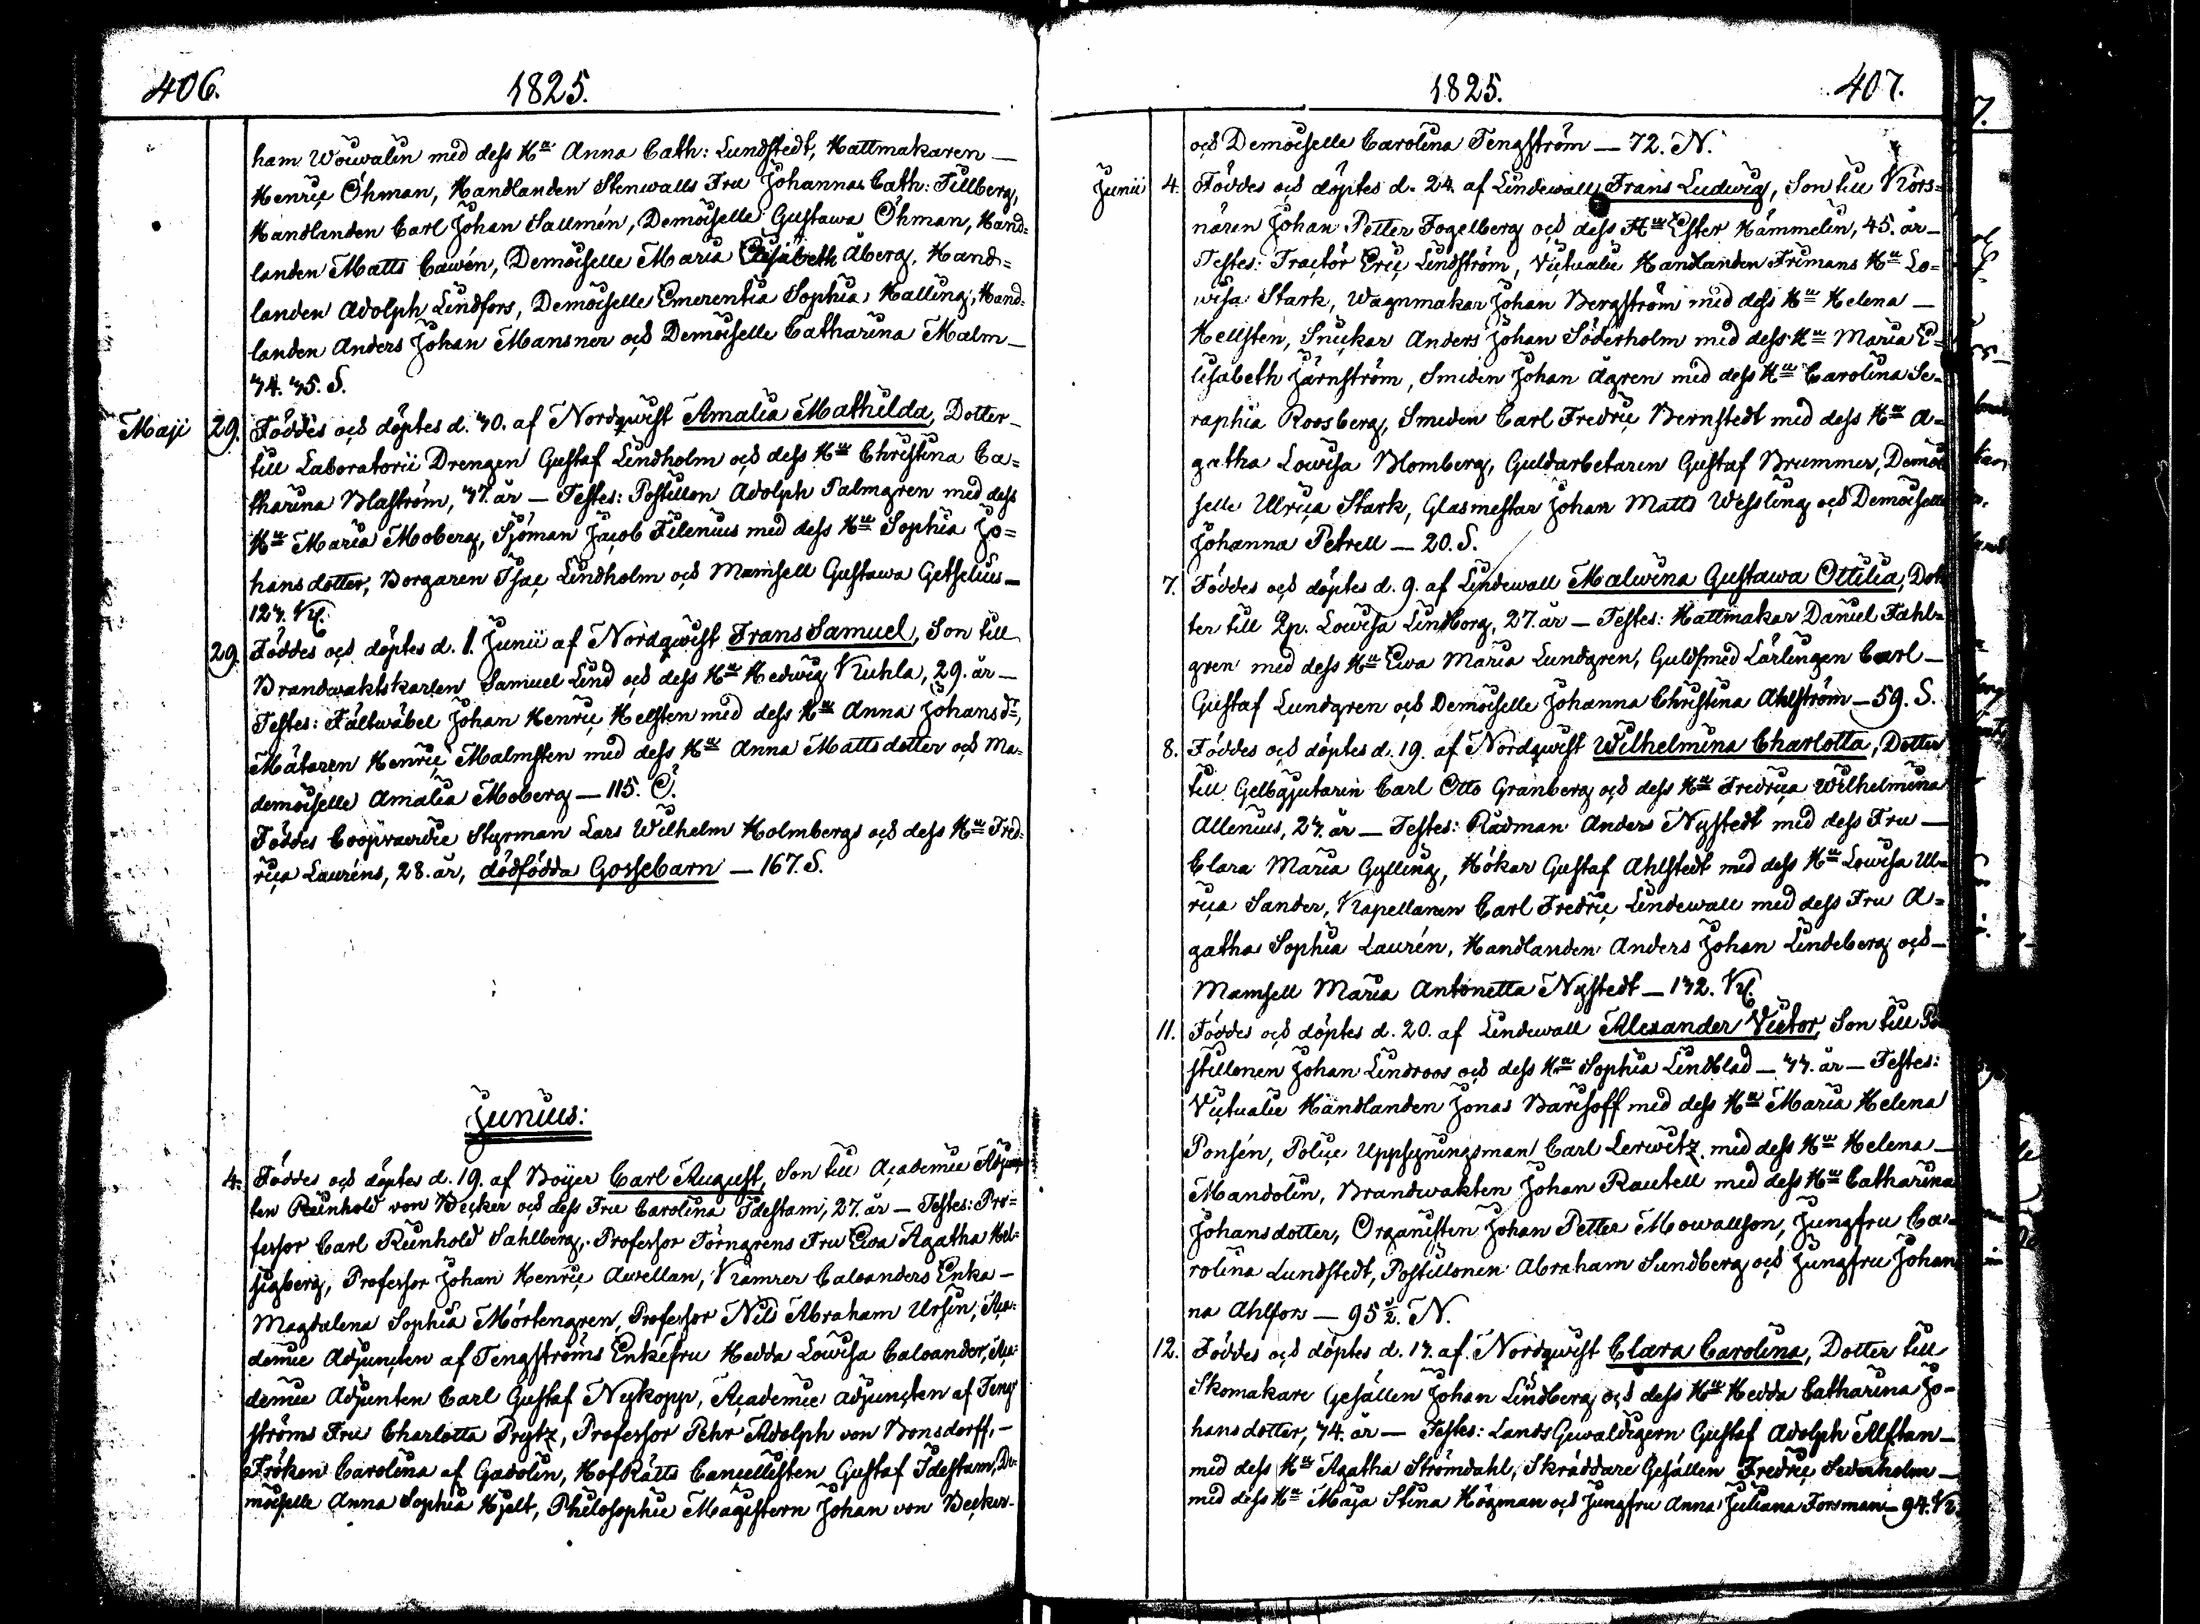 406.
1825.
ham Wouvalin med dess Hu Anna Cath: Lundstedt, Hattmakaren —
Henric Öhman, Handlanden Stenwalls Fru Johanna Cath: Tillberg,
Handlanden Carl Johan Sallmén, Demoiselle Gustawa Öhman, Hand=
landen Matts Cawén, Demoiselle Maria Elisabeth Åberg, Hand=
landen Adolph Lindfors, Demoiselle Emerentia Sophia Halling, Hand=
landen Anders Johan Mansner och Demoiselle Catharina Malm —
34. 35. S.
Maji 29. Föddes och döptes d. 30. af Nordqwist Amalia Mathilda, Dotter —
till Laboratorii Drengen Gustaf Lindholm och dess Hu Christina Ca=
tharina Blaström, 37. år — Testes: Postillon Adolph Palmgren med dess
Hu Maria Moberg, Sjöman Jacob Filenius med dess Hu Sophia Jo=
hansdotter, Borgaren Isac Lindholm och Mamsell Gustawa Getselius —
123. Kl.
29. Föddes och döptes d. 1. Junii af Nordqwist Frans Samuel, Son till
Brandwaktskarlen Samuel Lind och dess Hu Hedwig Kuhla, 29. år —
Testes: Fältwäbel Johan Henric Helsten med dess Hu Anna Johansdr,
Mätaren Henric Malmsten med dess Hu Anna Mattsdotter och Ma=
demoiselle Amalia Moberg — 115. C.
Föddes Coopvaerdie Styrman Lars Wilhelm Holmbergs och dess Hu Fred=
rica Lauréns, 28. år, dödfödda Gossebarn — 167. S.
Junius:
4. Föddes och döptes d. 19. af Boijer Carl August, Son till Academie Adjunc
ten Reinhold von Becker och dess Fru Carolina Idestam, 27. år — Testes: Pro=
fessor Carl Reinhold Sahlberg, Professor Törngrens Fru Ewa Agatha Hel=
sigberg, Professor Johan Henric Awellan, Kamrer Caloanders Enka —
Magdalena Sophia Mörtengren, Professor Nils Abraham Ursin, Aca=
demie Adjuncten af Tengströms Enkefru Hedda Lowisa Caloander, Aca=
demie Adjunten Carl Gustaf Nykopp, Academie Adjuncten af Teng
ströms Fru Charlotta Prytz, Professor Pehr Adolph von Bonsdorff, —
Fröken Carolina af Gadolin, HofRätts Cancellisten Gustaf Idestam, De=
moiselle Anna Sophia Hjelt, Philosophie Magistern Johan von Becker
1825.
407.
och Demoiselle Carolina Tengström — 72. N.
Junii 4. Föddes och döptes d. 24. af Lindewall Frans Ludwig, Son till Körs=
nären Johan Petter Fogelberg och dess Hu Ester Hämmelin, 45. år —
Testes: Tractör Eric Lindström, Victualie Handlanden Frimans Hu Lo=
wisa Stark, Wagnmakar Johan Bergström med dess Hu Helena —
Hellsten, Snickar Anders Johan Söderholm med dess Hu Maria E=
lisabeth Järnström, Smeden Johan Ågren med dess Hu Carolina Se=
raphia Roosberg, Smeden Carl Fredric Bernstedt med dess Hu A=
gatha Lowisa Blomberg, Guldarbetaren Gustaf Brummer, Demoi
selle Ulrica Stark, Glasmestar Johan Matts Wessling och Demoiselle
Johanna Petrell — 20. S.
7. Föddes och döptes d. 9. af Lindewall Malwina Gustawa Ottilia, Dot
ter till Qp. Lowisa Lindborg, 27. år — Testes: Hattmakar Daniel Fahl=
gren med dess Hu Ewa Maria Lundgren, Guldsmed Lärlingen Carl —
Gustaf Lundgren och Demoiselle Johanna Christina Ahlström — 59. S.
8. Föddes och döptes d. 19. af Nordqwist Wilhelmina Charlotta, Dotter
till Gelbgjutaren Carl Otto Granberg och dess Hu Fredrica Wilhelmina
Allenius, 23. år — Testes: Rådman Anders Nystedt med dess Fru —
Clara Maria Gylling, Hökar Gustaf Ahlstedt med dess Hu Lowisa Ul=
rica Sander, Kapellanen Carl Fredric Lindewall med dess Fru A=
gatha Sophia Laurén, Handlanden Anders Johan Lindeberg och —
Mamsell Maria Antonetta Nystedt — 132. Kl.
11. Föddes och döptes d. 20. af Lindewall Alexander Victor, Son till Po
stillonen Johan Lindroos och dess Hu Sophia Lindblad — 33. år — Testes:
Victualie Handlanden Jonas Barisoff med dess Hu Maria Helena
Ponsén, Police Uppsyningsman Carl Lerwitz med dess Hu Helena —
Mandolin, Brandwakten Johan Rautell med dess Hu Catharina
Johansdotter, Organisten Johan Petter Mowallson, Jungfru Ca=
rolina Lundstedt, Postillonen Abraham Sundberg och Jungfru Johan
na Ahlfors — 95 ½. N.
12. Föddes och döptes d. 13. af Nordqwist Clara Carolina, Dotter till
Skomakare Gesällen Johan Lindberg och dess Hu Hedda Catharina Jo=
hansdotter, 34. år — Testes: LandsGewaldigern Gustaf Adolph Alftan —
med dess Hu Agatha Strömdahl, Skräddare Gesällen Fredric Sederholm —
med dess Hu Maja Stina Högman och Jungfru Anna Juliana Forsman — 94. Kl.